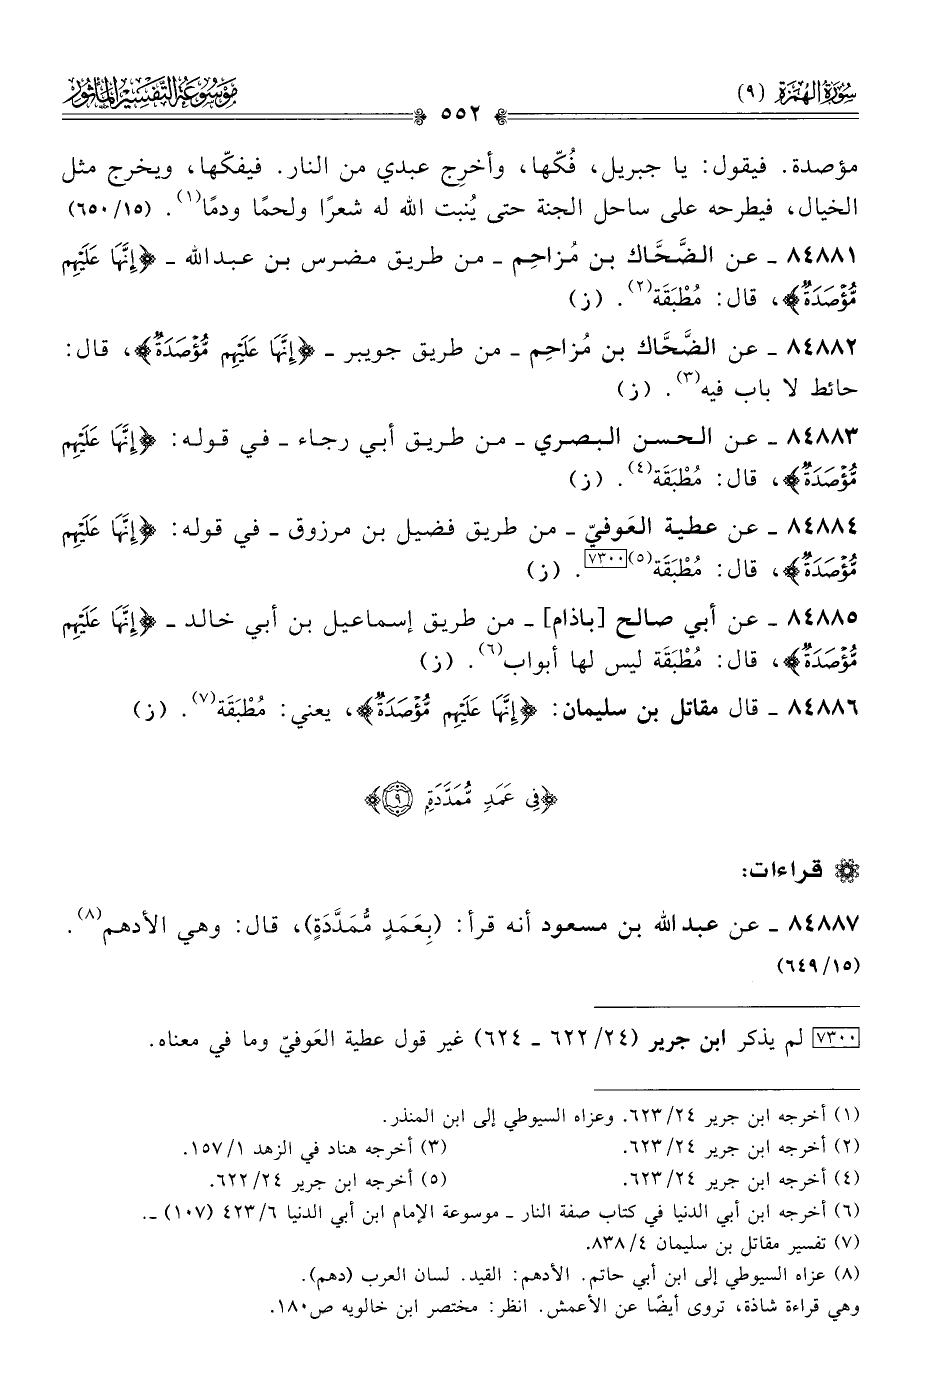 سُورَةُ الهُمَزَة (٩)
مَوْسُوعَةُ التَّفْسِيرِ المَأْثُور
٥٥٢
مؤصدة. فيقول: يا جبريل، فُكّها، وأخرِج عبدي من النار. فيفكّها، ويخرج مثل
الخيال، فيطرحه على ساحل الجنة حتى يُنبت الله له شعرًا ولحمًا ودمًا(١). (١٥/ ٦٥٠)
٨٤٨٨١ ـ عن الضَّحَّاك بن مُزاحِم ـ من طريق مضرس بن عبدالله ـ ﴿إِنَّهَا عَلَيْهِم
مُّؤْصَدَةٌ﴾، قال: مُطْبَقَة(٢). (ز)
٨٤٨٨٢ ـ عن الضَّحَّاك بن مُزاحِم ـ من طريق جويبر ـ ﴿إِنَّهَا عَلَيْهِم مُّؤْصَدَةٌ﴾، قال:
حائط لا باب فيه(٣). (ز)
٨٤٨٨٣ ـ عن الحسن البصري ـ من طريق أبي رجاء ـ في قوله: ﴿إِنَّهَا عَلَيْهِم
مُّؤْصَدَةٌ﴾، قال: مُطْبَقَة(٤). (ز)
٨٤٨٨٤ ـ عن عطية العَوفيّ ـ من طريق فضيل بن مرزوق ـ في قوله: ﴿إِنَّهَا عَلَيْهِم
مُّؤْصَدَةٌ﴾، قال: مُطْبَقَة(٥)[٧٣٠٠]. (ز)
٨٤٨٨٥ ـ عن أبي صالح [باذام] ـ من طريق إسماعيل بن أبي خالد ـ ﴿إِنَّهَا عَلَيْهِم
مُّؤْصَدَةٌ﴾، قال: مُطْبَقَة ليس لها أبواب(٦). (ز)
٨٤٨٨٦ ـ قال مقاتل بن سليمان: ﴿إِنَّهَا عَلَيْهِم مُّؤْصَدَةٌ﴾، يعني: مُطْبَقَة(٧). (ز)
﴿فِي عَمَدٍ مُّمَدَّدَةٍ ٩﴾
قراءات:
٨٤٨٨٧ ـ عن عبدالله بن مسعود أنه قرأ: (بِعَمَدٍ مُّمَدَّدَةٍ)، قال: وهي الأدهم(٨).
(١٥/ ٦٤٩)
[٧٣٠٠] لم يذكر ابن جرير (٢٤/ ٦٢٢ ـ ٦٢٤) غير قول عطية العَوفيّ وما في معناه.
(١) أخرجه ابن جرير ٢٤/ ٦٢٣. وعزاه السيوطي إلى ابن المنذر.
(٢) أخرجه ابن جرير ٢٤/ ٦٢٣. (٣) أخرجه هناد في الزهد ١/ ١٥٧.
(٤) أخرجه ابن جرير ٢٤/ ٦٢٣. (٥) أخرجه ابن جرير ٢٤/ ٦٢٢.
(٦) أخرجه ابن أبي الدنيا في كتاب صفة النار ـ موسوعة الإمام ابن أبي الدنيا ٦/ ٤٢٣ (١٠٧) ـ.
(٧) تفسير مقاتل بن سليمان ٤/ ٨٣٨.
(٨) عزاه السيوطي إلى ابن أبي حاتم. الأدهم: القيد. لسان العرب (دهم).
وهي قراءة شاذة، تروى أيضًا عن الأعمش. انظر: مختصر ابن خالويه ص١٨٠.